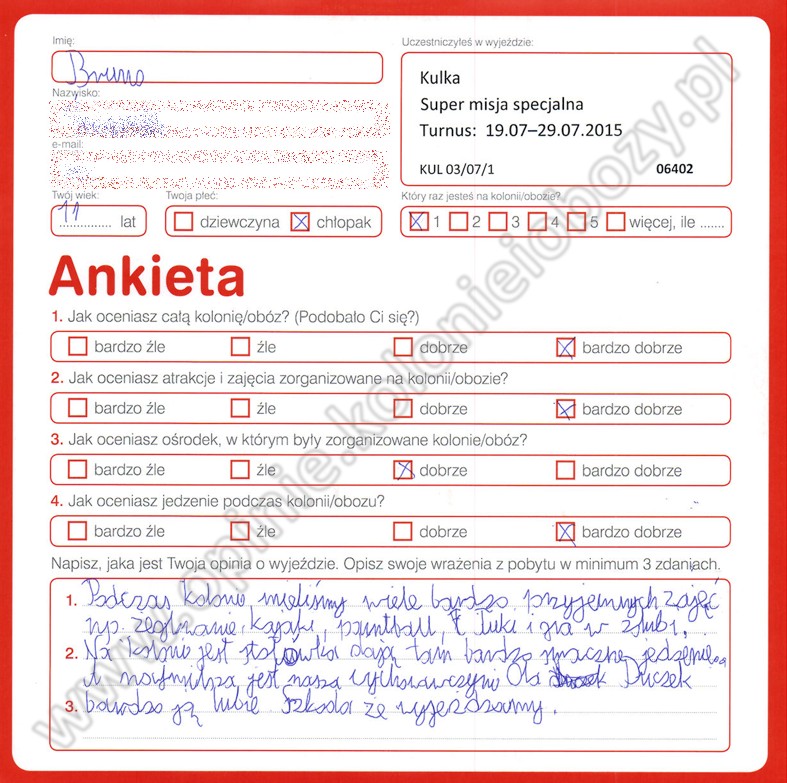 Imię:
Bruno
Uczestniczyłeś w wyjeździe:
Kulka
Super misja specjalna
Turnus: 19.07–29.07.2015
KUL 03/07/1 06402
Nazwisko:
e-mail:
Twój wiek:
11 lat
Twoja płeć:
dziewczyna chłopak
Który raz jesteś na kolonii/obozie?
1 2 3 4 5 więcej, ile .......
Ankieta
1. Jak oceniasz całą kolonię/obóz? (Podobało Ci się?)
bardzo źle źle dobrze bardzo dobrze
2. Jak oceniasz atrakcje i zajęcia zorganizowane na kolonii/obozie?
bardzo źle źle dobrze bardzo dobrze
3. Jak oceniasz ośrodek, w którym były zorganizowane kolonie/obóz?
bardzo źle źle dobrze bardzo dobrze
4. Jak oceniasz jedzenie podczas kolonii/obozu?
bardzo źle źle dobrze bardzo dobrze
Napisz, jaka jest Twoja opinia o wyjeździe. Opisz swoje wrażenia z pobytu w minimum 3 zdaniach.
1. Podczas kolonie mieliśmy wiele bardzo przyjemnych zajęć
np. żeglowanie, kajaki, paintball, łuki i gra w
2. Na kolonie jest stołówka dają tam bardzo smaczne jedzenie.
A najmilsza jest nasza wychowawczyni Ola Duczek
3. bardzo ją lubię. Szkoda że wyjeżdżamy.
www.opinie.kolonieiobozy.pl